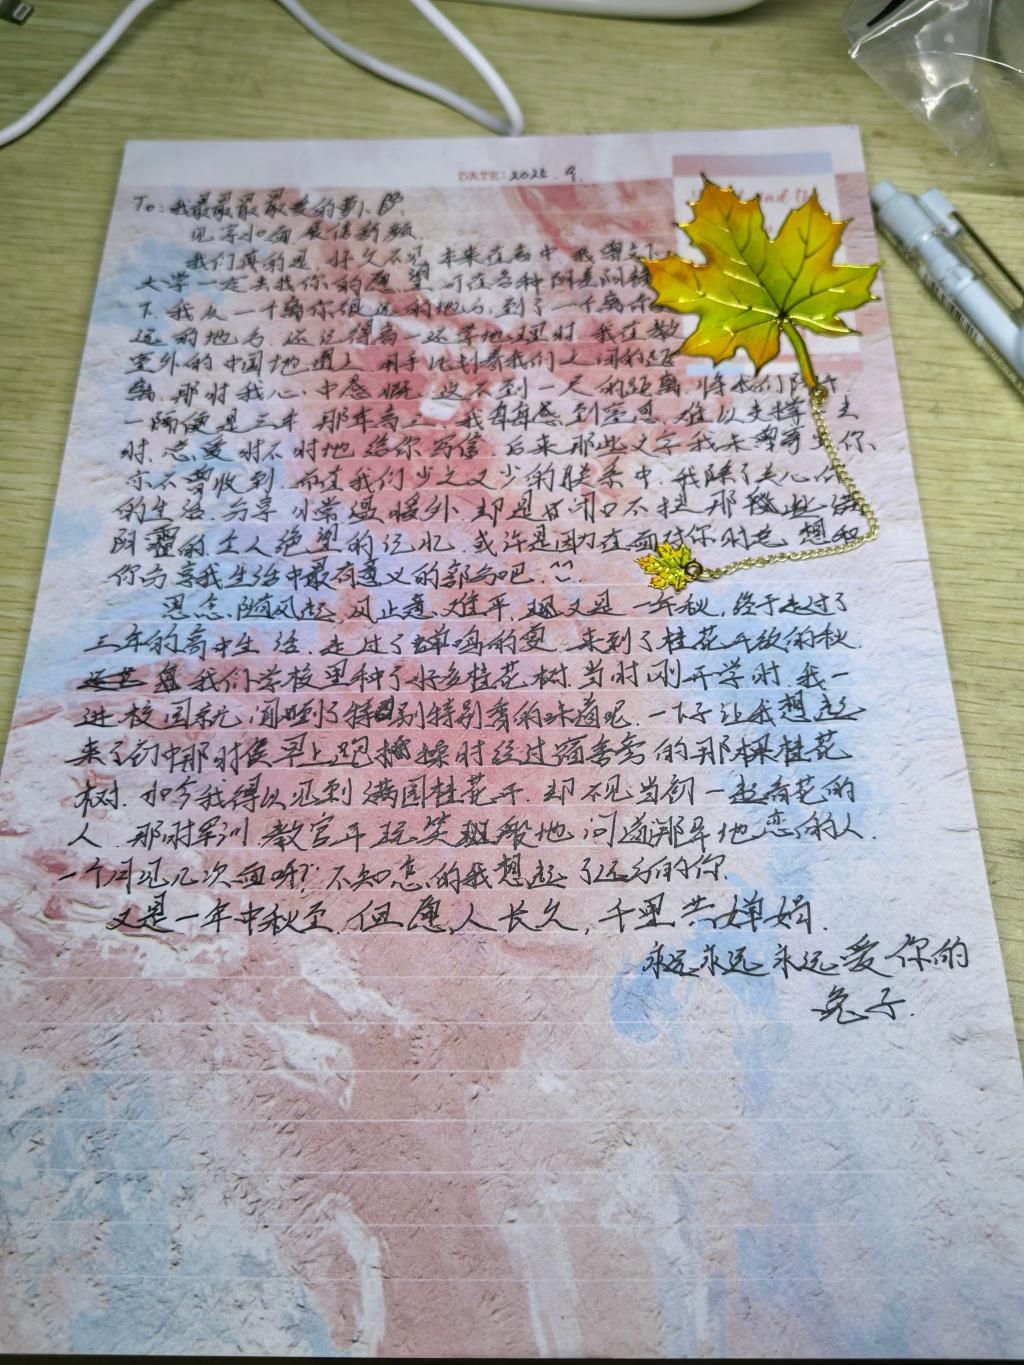 DATE: 2022. 9.
To: 我最最最最爱的萝卜
见字如面 展信舒颜
我们真的是 好久不见 未来在高中 我曾
大学一定去找你的愿望 可在各种阴差阳
下,我从一个离你很远的地方,到了一个离你
远的地方,还记得高一还学地理时 我在教
室外的中国地图上 用手比划着我们之间的距
离,那时我心中感慨,这不到一尺的距离,将我们
一隔便是三年 那年高三,我每每感到 难以支撑 去
时,总爱时不时地给你写信,后来那些文字我未曾寄出,你、
亦不曾收到,而在我们少之又少的联系中,我除了关心你
的生活,分享 小常温暖外,却是闭口不提那些满
阴霾的,令人绝望的记忆,或许是因为在面对你时总 想和
你分享我生活中最有意义的部分吧.^^.
思念随风起,风止意难平,又是一年秋,终于走过了
三年的高中生活,走过了蝉鸣的夏 来到了桂花开放的秋
我们学校里种了好多桂花树,当时刚开学时,我一
进校园就闻到了特别特别香的味道呢,一下子让我想起
来了初中那时候早上跑操时经过 的那棵桂花
树,如今我得以见到满园桂花开,却不见当初一起看花的
人,那时军训,教官开玩笑般地问道那异地恋的人
一个月见几次面呀?不知怎的我想起了远方的你.
又是一年中秋至,但愿人长久,千里共婵娟.
永远永远永远爱你的
兔子.